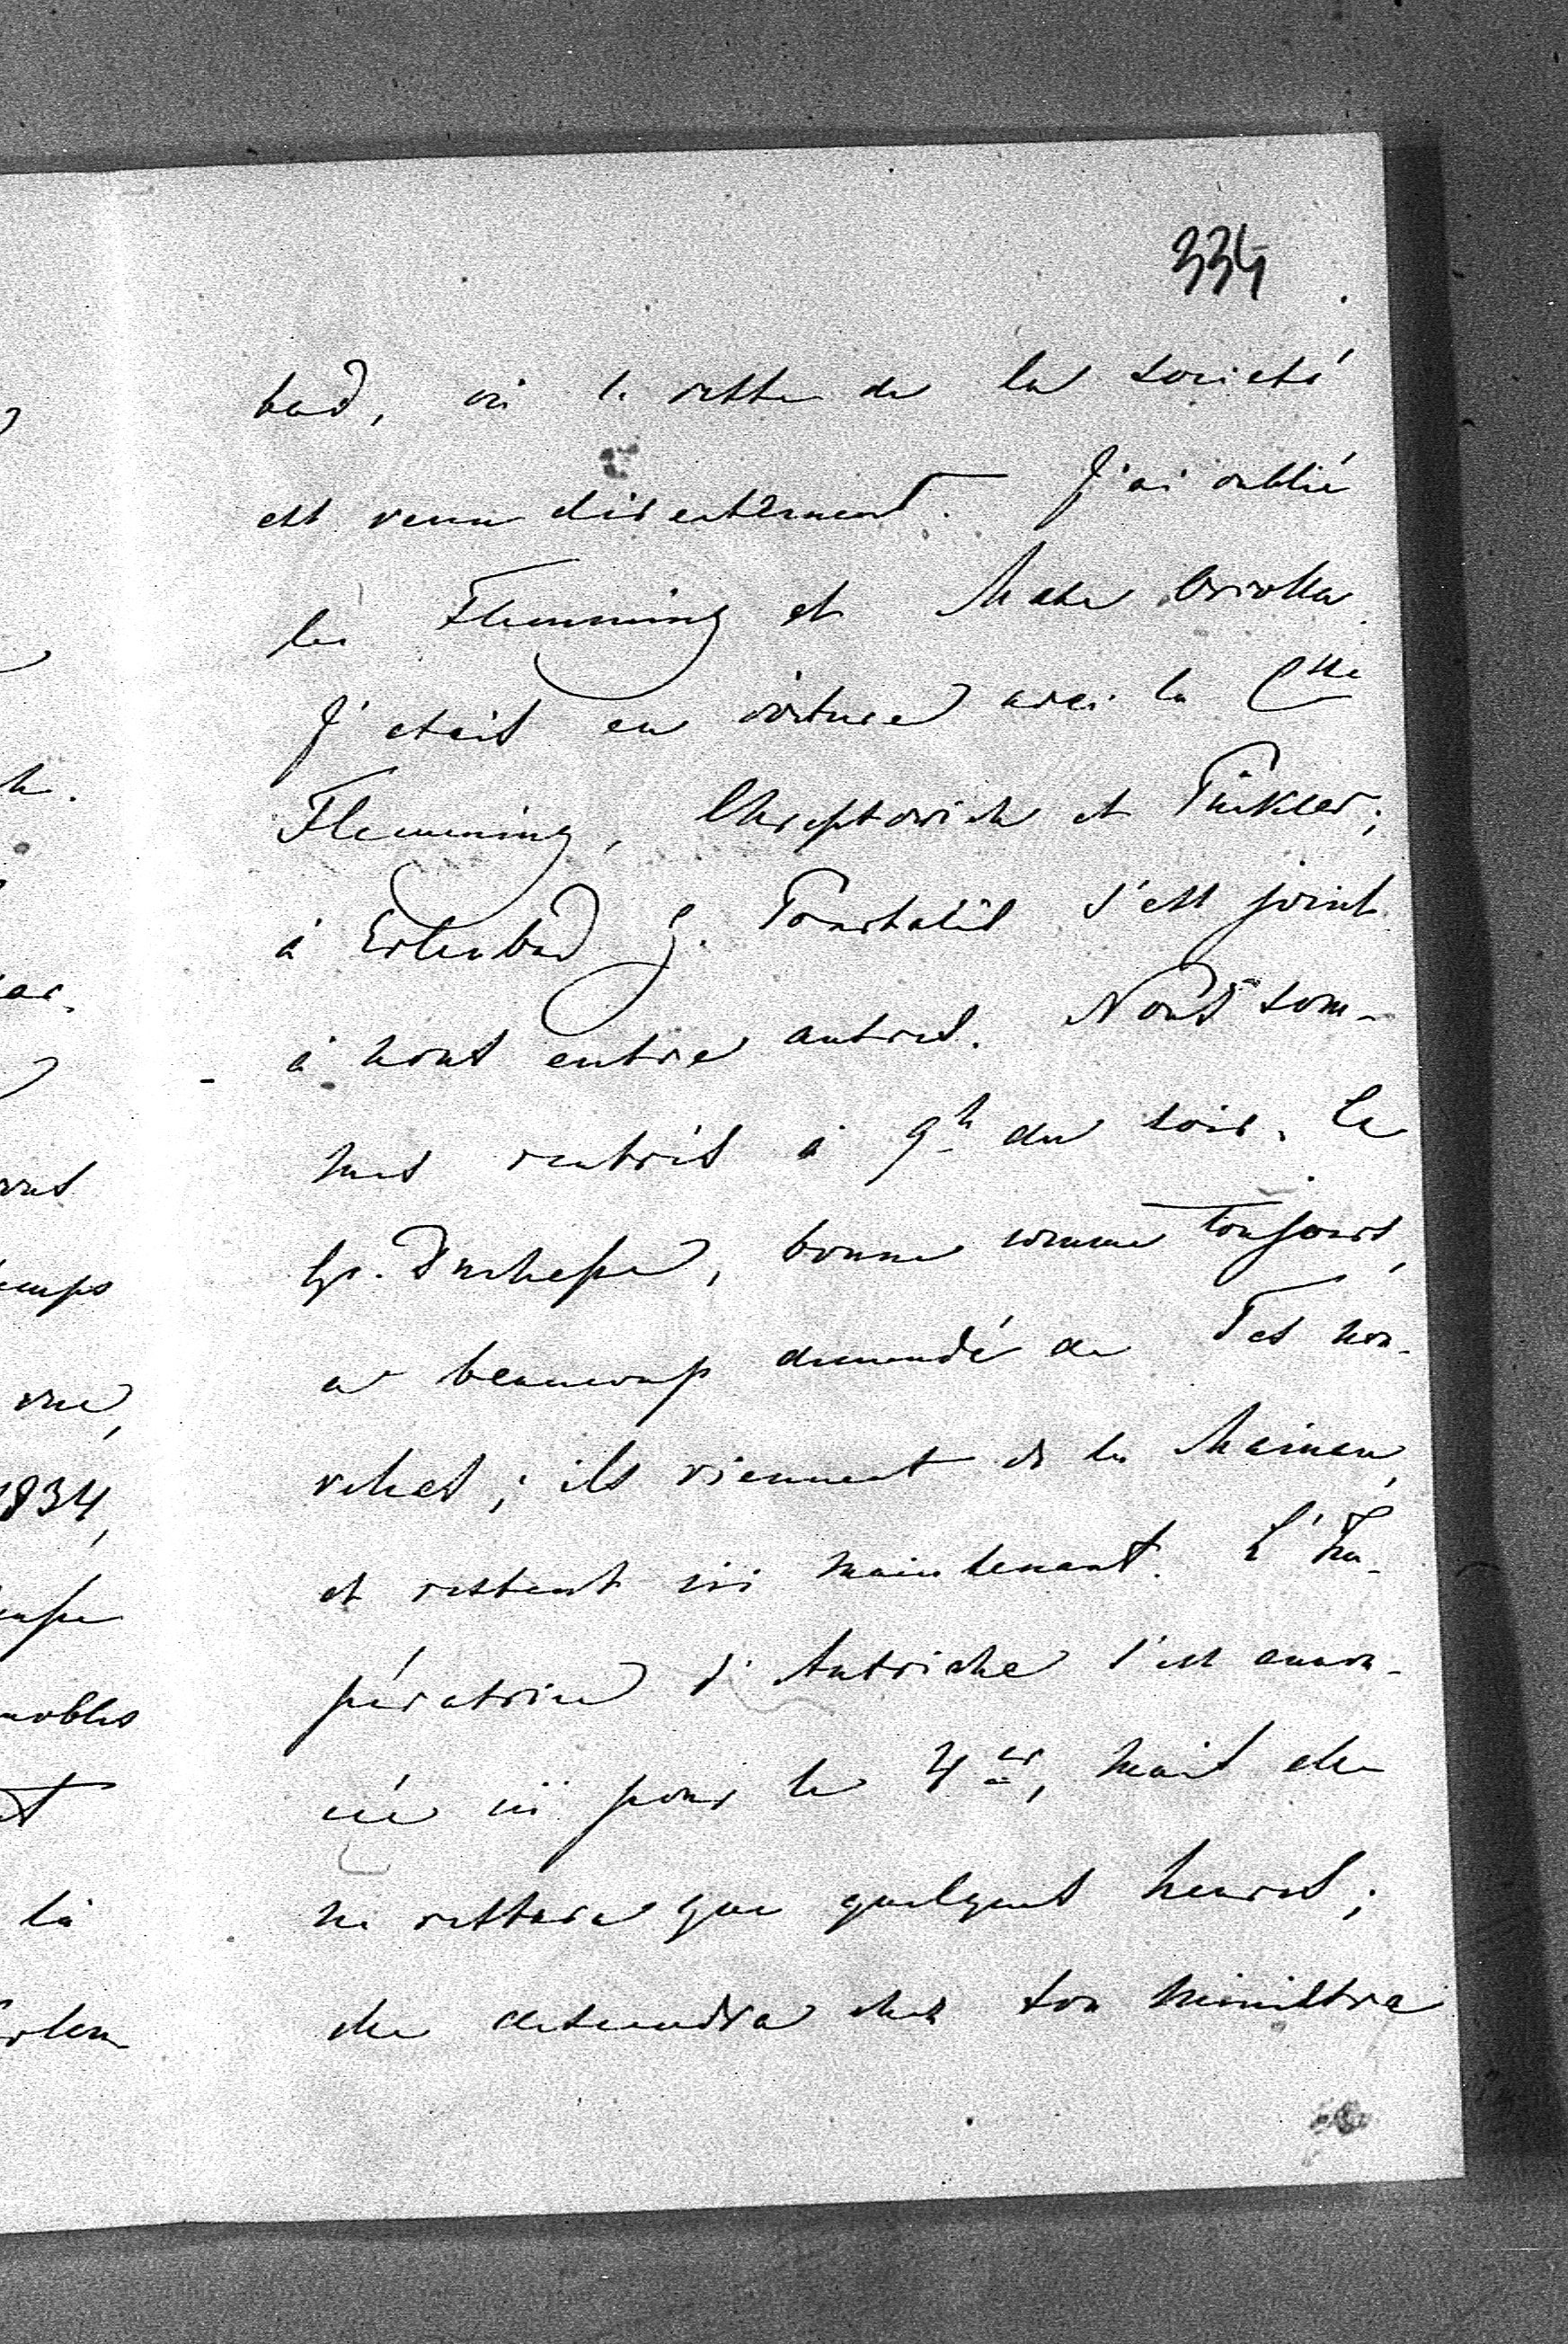 334
bad, où le reste de la société
est venu directement. J'ai oublié
les Flemming et Made Oriolla.
J'étais en voiture avec la Ctesse
Flemming, Chreptovich et Pückler;
à Erlenbad G. Pourtalès s'est joint
à nous entre autres. Nous som-
mes rentrés à 9h du soir. La
Gr. Duchesse, bonne comme toujours,
a beaucoup demandé de Tes nou-
velles; ils viennent de la Mainau,
et restent ici maintenant. L'Im-
pératrice d'Autriche s'est annon-
cée ici pour le 4er, mais elle
ne restera que quelques heures;
elle descendra chez son ministre
h.
ar.
ous
temps
vue,
1834,
nobles
là
Erlen